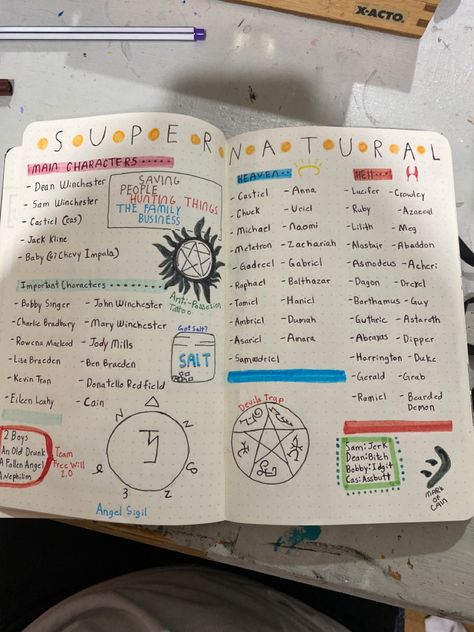 X-ACTO
SUPERNATURAL
MAIN CHARACTERS
- Dean Winchester
- Sam Winchester
- Castiel (cas)
- Jack Kline
- Baby (67 Chevy Impala)
SAVING
PEOPLE
HUNTING THINGS
THE FAMILY
BUSINESS
Anti-Possession
Tattoo
Important Characters
- Bobby Singer
- Charlie Bradbury
- Rowena Macleod
- Lisa Braeden
- Kevin Tran
- Eileen Leahy
- John Winchester
- Mary Winchester
- Jody Mills
- Ben Braeden
- Donatello Redfield
- Cain
Got Salt?
SALT
2 Boys
An Old Drunk
A Fallen Angel
A Nephilim
Team
Free Will
2.0
Angel Sigil
HEAVEN
- Castiel
- Chuck
- Michael
- Metatron
- Gadreel
- Raphael
- Tamiel
- Ambriel
- Asariel
- Samandriel
- Anna
- Uriel
- Naomi
- Zachariah
- Gabriel
- Balthazar
- Haniel
- Dumah
- Amara
Devils Trap
HELL
- Lucifer
- Ruby
- Lilith
- Alastair
- Asmodeus
- Dagon
- Barthamus
- Guthrie
- Abraxas
- Harrington
- Gerald
- Ramiel
- Crowley
- Azazeal
- Meg
- Abaddon
- Acheri
- Drexel
- Guy
- Astaroth
- Dipper
- Duke
- Grab
- Bearded
Demon
Sam: Jerk
Dean: Bitch
Bobby: Idgit
Cas: Assbutt
MARK
OF
CAIN